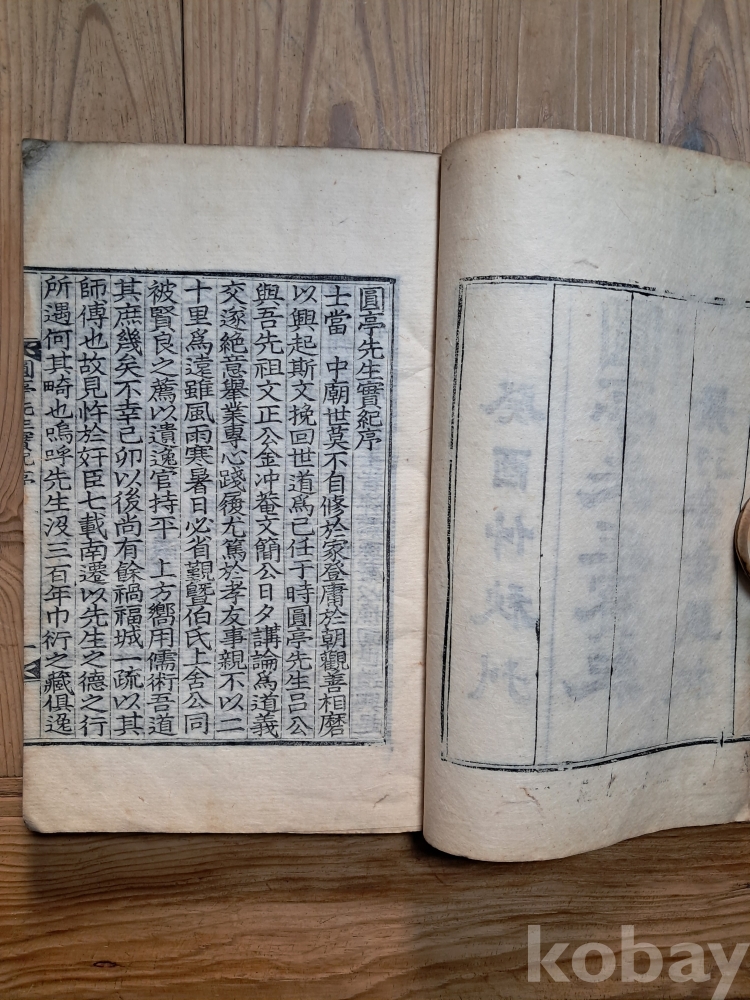 圓亭先生實紀序
士當 中廟世莫不自修於家登庸於朝觀善相磨
以興起斯文挽回世道爲己任于時圓亭先生呂公
與吾先祖文正公金冲菴文簡公日夕講論爲道義
交遂絶意擧業專心踐履尤篤於孝友事親不以二
十里爲遠雖風雨寒暑日必省覲曁伯氏上舍公同
被賢良之薦以遺逸官持平 上方嚮用儒術吾道
其庶幾矣不幸己卯以後尚有餘禍福城一疏以其
師傅也故見忤於奸臣七載南遷以先生之德之行
所遇何其畸也嗚呼先生沒三百年巾衍之藏俱逸
kobay